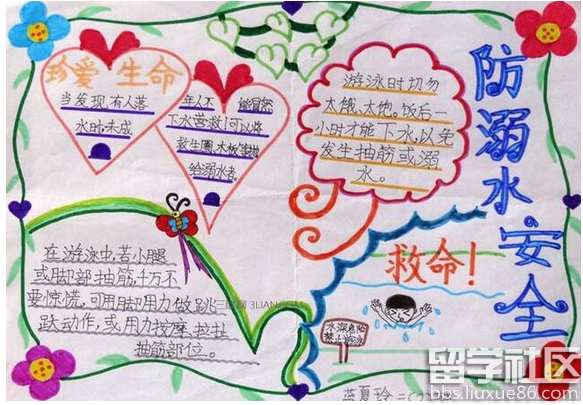 珍爱生命
当发现有人落
水时,未成
年人不能冒然
下水营救!可以将
救生圈、木板等抛
给溺水者。
游泳时切勿
太饿、太饱。饭后一
小时才能下水,以免
发生抽筋或溺
水。
防溺水安全
在游泳中,若小腿
或脚部抽筋,千万不
要惊慌,可用脚用力做跳
跃动作,或用力按摩、拉扯
抽筋部位。
三联网 3LIAN.COM
救命!
水深危险
禁止游泳
蓝夏玲
留学社区
bbs.liuxue86.com